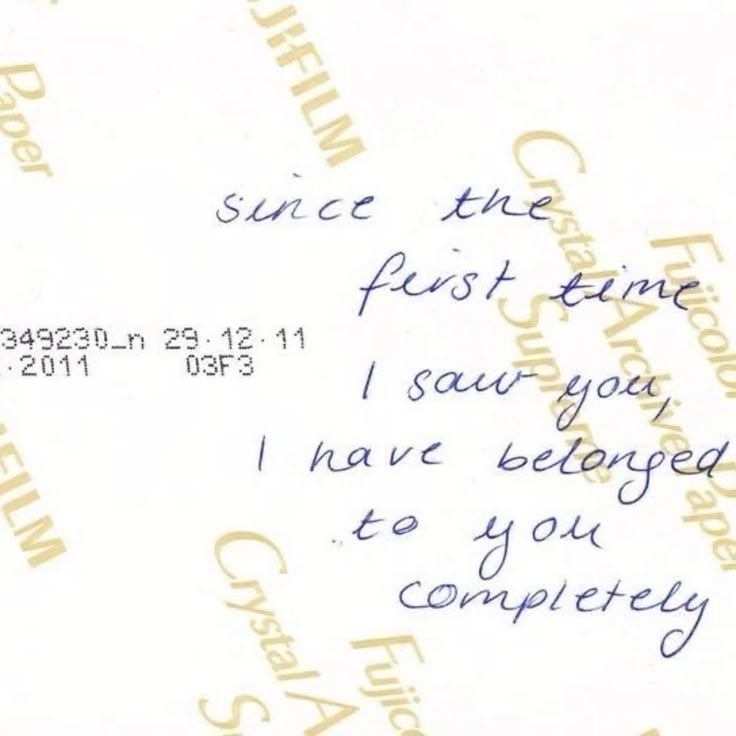 JIFILM
Paper
Crystal Archive Paper
Supreme
Fujicolor
since the
first time
349230_n 29.12.11
.2011 03F3
I saw you,
I have belonged
to you
completely
FILM
Crystal A
Fujic
S